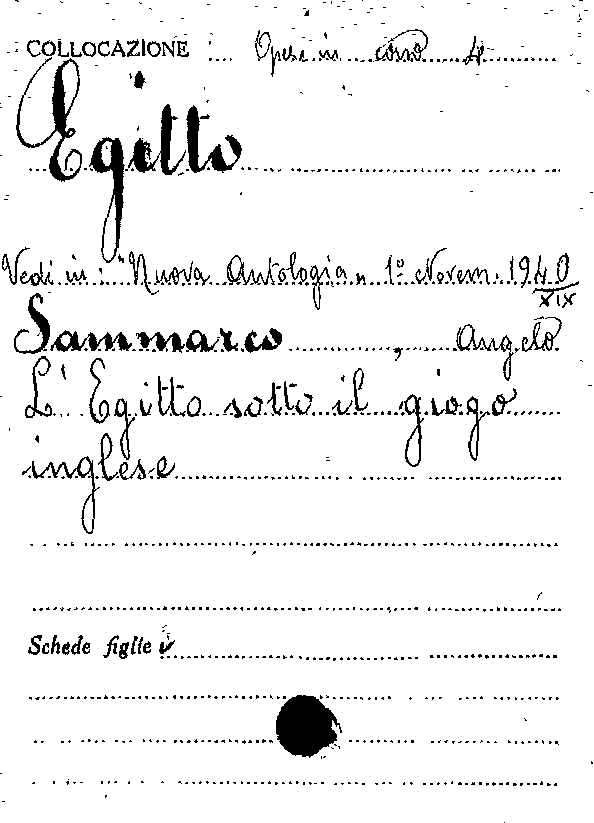 COLLOCAZIONE Opere in corso 4
Egitto
Vedi in: "Nuova Antologia„ 1º Novem. 1940
XIX
Sammarco, Angelo
L'Egitto sotto il giogo
inglese
Schede figlie